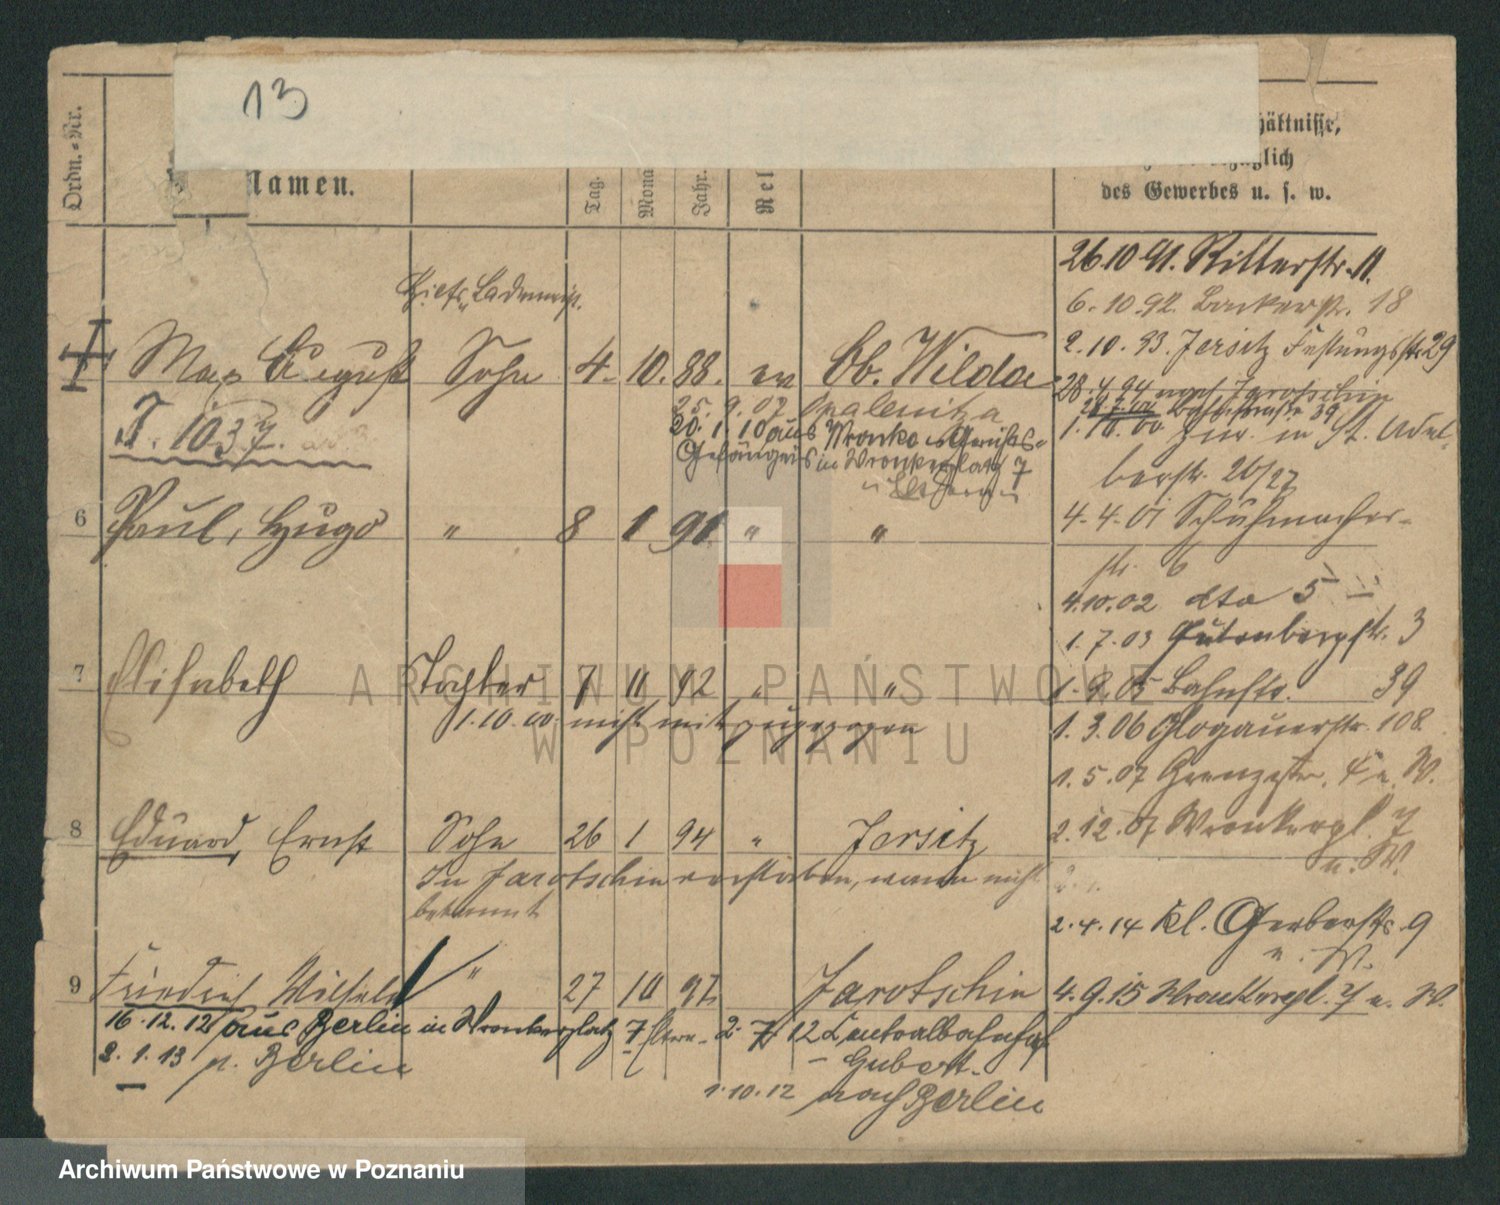 13
Ordn.-Nr.
Namen.
Tag.
Mona
Jahr.
Rel
hältnisse,
des Gewerbes u. s. w.
26.10.91. Ritterstr. 11.
6.10.92. Bäckerstr. 18
2.10.93. Jersitz Festungsstr. 29
Max August Sohn 4. 10. 88. ev Ob. Wilda
28.4.94 nach Jarotschin
25. 9. 07 Opalenitza
J. 1037.
20. 1. 10 aus Wronke Gerichts-
Gefängnis in Wronkerplatz 7
1.10.00 zur. in St. Adal-
bertstr. 26/27
6 Paul, Hugo " 8 1 91 " "
4.4.01 Schuhmacher-
str. 6
4.10.02 dto 5
1.7.03 Gutenbergstr. 3
7 Elisabeth Tochter 7 11 92 " "
1.10.00. nicht mit zugezogen
Bahnstr. 39
1.3.06 Glogauerstr. 108
1.5.07 Grenzstr. u. W.
8 Eduard, Ernst Sohn 26 1 94 " Jersitz
2.12.07 Wronkerpl. 7
u. W.
In Jarotschin verstorben, wann nicht
bekannt
2.4.14 Kl. Gerberstr. 9
u. W.
9 Friedrich Wilhelm " 27 10 97 Jarotschin
4.9.15 Wronkerpl. 7 u. W.
16.12.12 aus Berlin in Wronkerplatz 7 Eltern
2. 7. 12 Centralbahnhof
2.1.13 n. Berlin
1.10.12 nach Berlin
ARCHIWUM PAŃSTWOWE
W POZNANIU
Archiwum Państwowe w Poznaniu